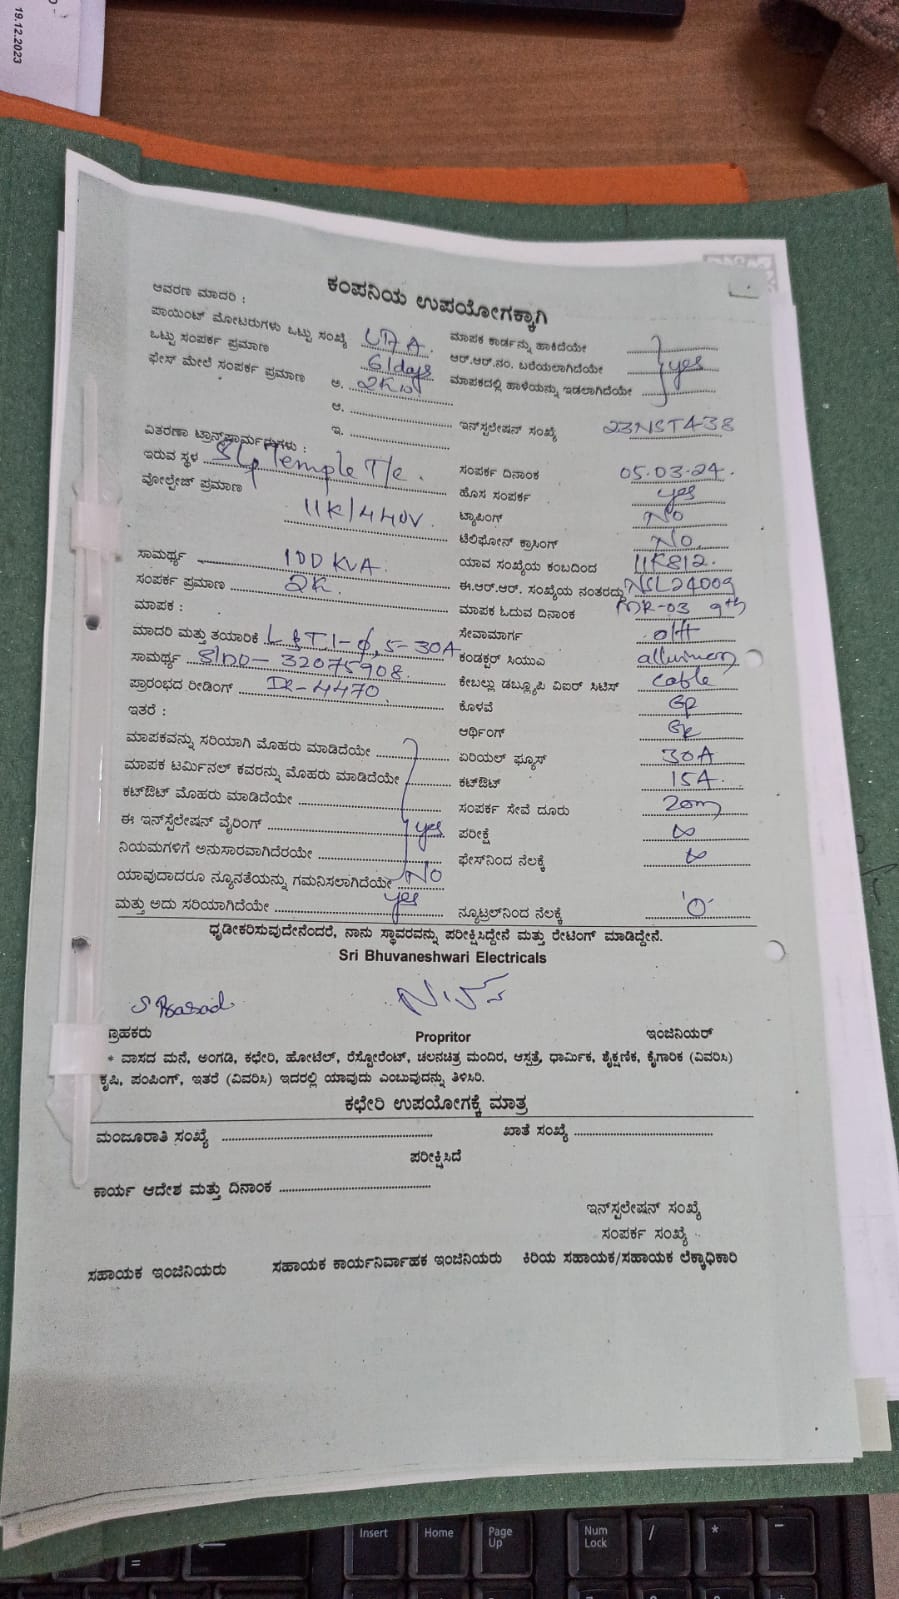 19.12.2023
ಕಂಪನಿಯ ಉಪಯೋಗಕ್ಕಾಗಿ
ಆವರಣ ಮಾದರಿ :
ಪಾಯಿಂಟ್ ಮೋಟರುಗಳು ಒಟ್ಟು ಸಂಖ್ಯೆ
ಒಟ್ಟು ಸಂಪರ್ಕ ಪ್ರಮಾಣ 61days
ಫೇಸ್ ಮೇಲೆ ಸಂಪರ್ಕ ಪ್ರಮಾಣ ಅ. 2Kw
ಆ.
ಇ.
ವಿತರಣಾ ಟ್ರಾನ್ಸ್‌ಫಾರ್ಮರುಗಳು :
ಇರುವ ಸ್ಥಳ Temple T/c.
ವೋಲ್ಟೇಜ್ ಪ್ರಮಾಣ
11K/440V.
ಸಾಮರ್ಥ್ಯ 100 KVA.
ಸಂಪರ್ಕ ಪ್ರಮಾಣ 2K.
ಮಾಪಕ :
ಮಾದರಿ ಮತ್ತು ತಯಾರಿಕೆ L&T.1-ϕ, 5-30A
ಸಾಮರ್ಥ್ಯ S/NO- 32075908.
ಪ್ರಾರಂಭದ ರೀಡಿಂಗ್ IR-4470
ಇತರೆ :
ಮಾಪಕವನ್ನು ಸರಿಯಾಗಿ ಮೊಹರು ಮಾಡಿದೆಯೇ
ಮಾಪಕ ಟರ್ಮಿನಲ್ ಕವರನ್ನು ಮೊಹರು ಮಾಡಿದೆಯೇ
ಕಟ್‌ಔಟ್ ಮೊಹರು ಮಾಡಿದೆಯೇ
ಈ ಇನ್‌ಸ್ಟಲೇಷನ್ ವೈರಿಂಗ್ yes
ನಿಯಮಗಳಿಗೆ ಅನುಸಾರವಾಗಿದೆರಯೇ
ಯಾವುದಾದರೂ ನ್ಯೂನತೆಯನ್ನು ಗಮನಿಸಲಾಗಿದೆಯೇ No
ಮತ್ತು ಅದು ಸರಿಯಾಗಿದೆಯೇ yes
ಮಾಪಕ ಕಾರ್ಡನ್ನು ಹಾಕಿದೆಯೇ
ಆರ್.ಆರ್.ನಂ. ಬರೆಯಲಾಗಿದೆಯೇ yes
ಮಾಪಕದಲ್ಲಿ ಹಾಳೆಯನ್ನು ಇಡಲಾಗಿದೆಯೇ
ಇನ್‌ಸ್ಟಲೇಷನ್ ಸಂಖ್ಯೆ 23NST438
ಸಂಪರ್ಕ ದಿನಾಂಕ 05.03.24.
ಹೊಸ ಸಂಪರ್ಕ yes
ಟ್ಯಾಪಿಂಗ್ No
ಟೆಲಿಫೋನ್ ಕ್ರಾಸಿಂಗ್ No.
ಯಾವ ಸಂಖ್ಯೆಯ ಕಂಬದಿಂದ 11K812.
ಈ.ಆರ್.ಆರ್. ಸಂಖ್ಯೆಯ ನಂತರದ್ದು NSL24009
ಮಾಪಕ ಓದುವ ದಿನಾಂಕ MR-03 9th
ಸೇವಾಮಾರ್ಗ o/H
ಕಂಡಕ್ಟರ್ ಸಿಯುಎ
ಕೇಬಲ್ಲು ಡಬ್ಲ್ಯೂಪಿ ವಿಐರ್ ಸಿಟಿಸ್ Cable
ಕೊಳವೆ GP
ಆರ್ಥಿಂಗ್
ಏರಿಯಲ್ ಫ್ಯೂಸ್ 30A
ಕಟ್‌ಔಟ್ 15A.
ಸಂಪರ್ಕ ಸೇವೆ ದೂರು 20m
ಪರೀಕ್ಷೆ ∞
ಫೇಸ್‌ನಿಂದ ನೆಲಕ್ಕೆ ∞
ನ್ಯೂಟ್ರಲ್‌ನಿಂದ ನೆಲಕ್ಕೆ '0'
ಧೃಡೀಕರಿಸುವುದೇನೆಂದರೆ, ನಾನು ಸ್ಥಾವರವನ್ನು ಪರೀಕ್ಷಿಸಿದ್ದೇನೆ ಮತ್ತು ರೇಟಿಂಗ್ ಮಾಡಿದ್ದೇನೆ.
Sri Bhuvaneshwari Electricals
S Prasad
ಗ್ರಾಹಕರು Propritor ಇಂಜಿನಿಯರ್
* ವಾಸದ ಮನೆ, ಅಂಗಡಿ, ಕಛೇರಿ, ಹೋಟೆಲ್, ರೆಸ್ಟೋರೆಂಟ್, ಚಲನಚಿತ್ರ ಮಂದಿರ, ಆಸ್ಪತ್ರೆ, ಧಾರ್ಮಿಕ, ಶೈಕ್ಷಣಿಕ, ಕೈಗಾರಿಕ (ವಿವರಿಸಿ)
ಕೃಷಿ, ಪಂಪಿಂಗ್, ಇತರೆ (ವಿವರಿಸಿ) ಇದರಲ್ಲಿ ಯಾವುದು ಎಂಬುವುದನ್ನು ತಿಳಿಸಿರಿ.
ಕಛೇರಿ ಉಪಯೋಗಕ್ಕೆ ಮಾತ್ರ
ಮಂಜೂರಾತಿ ಸಂಖ್ಯೆ ಖಾತೆ ಸಂಖ್ಯೆ
ಪರೀಕ್ಷಿಸಿದೆ
ಕಾರ್ಯ ಆದೇಶ ಮತ್ತು ದಿನಾಂಕ
ಇನ್‌ಸ್ಟಲೇಷನ್ ಸಂಖ್ಯೆ
ಸಂಪರ್ಕ ಸಂಖ್ಯೆ
ಸಹಾಯಕ ಇಂಜಿನಿಯರು ಸಹಾಯಕ ಕಾರ್ಯನಿರ್ವಾಹಕ ಇಂಜಿನಿಯರು ಕಿರಿಯ ಸಹಾಯಕ/ಸಹಾಯಕ ಲೆಕ್ಕಾಧಿಕಾರಿ
Insert Home Page Up Num Lock / * -
=